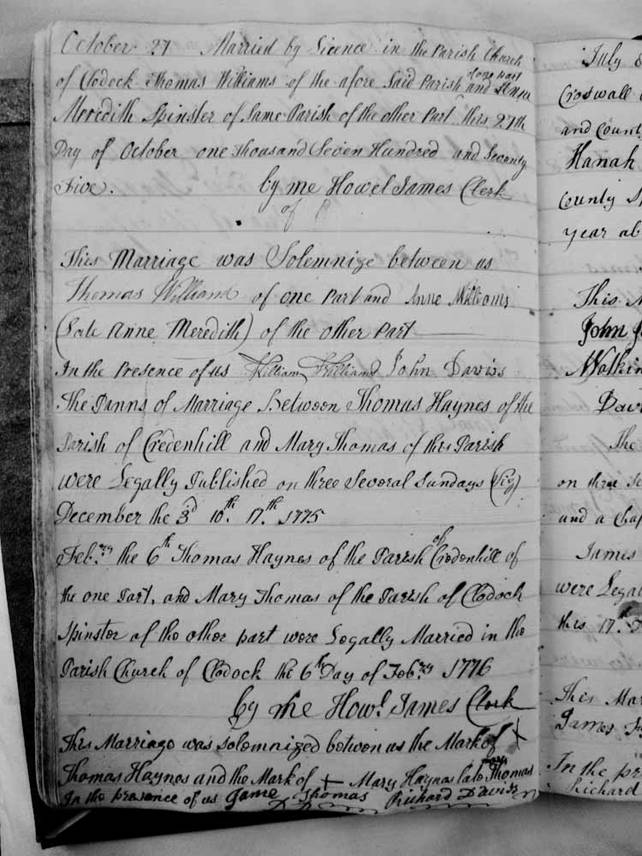 October 27 Married by Licence in the Parish Church
of Clodock Thomas Williams of the afore Said Parish of one part and Anne
Meredith Spinster of Same Parish of the other Part this 27th
Day of October one Thousand Seven Hundred and Seventy
Five. by me Howel James Clerk
of
This Marriage was Solemnize between us
Thomas William of one Part and Anne Williams
(Late Anne Meredith) of the other Part
In the Presence of us William William John Davies
The Banns of Marriage Between Thomas Haynes of the
Parish of Credenhill and Mary Thomas of this Parish
were Legally Published on three Several Sundays (Viz)
December the 3d 10th. 17th. 1775
Feb.ry the 6th Thomas Haynes of the Parish of Credenhill of
the one Part, and Mary Thomas of the Parish of Clodock
Spinster of the other part were Legally Married in the
Parish Church of Clodock the 6th Day of Feb.ry 1776
by me Howl James Clerk
This Marriage was solemnized between us the Mark of +
Thomas Haynes and the Mark of + Mary Haynes late Thomas
In the presence of us Thomas Richard Davies
July 8
Croswall
and Count
Hanah
County
year ab
This M
John J
Watkin
Davi
The
on three S
and a Chap
James
were Legal
this 17.
This Mar
James
In the pr
Richard